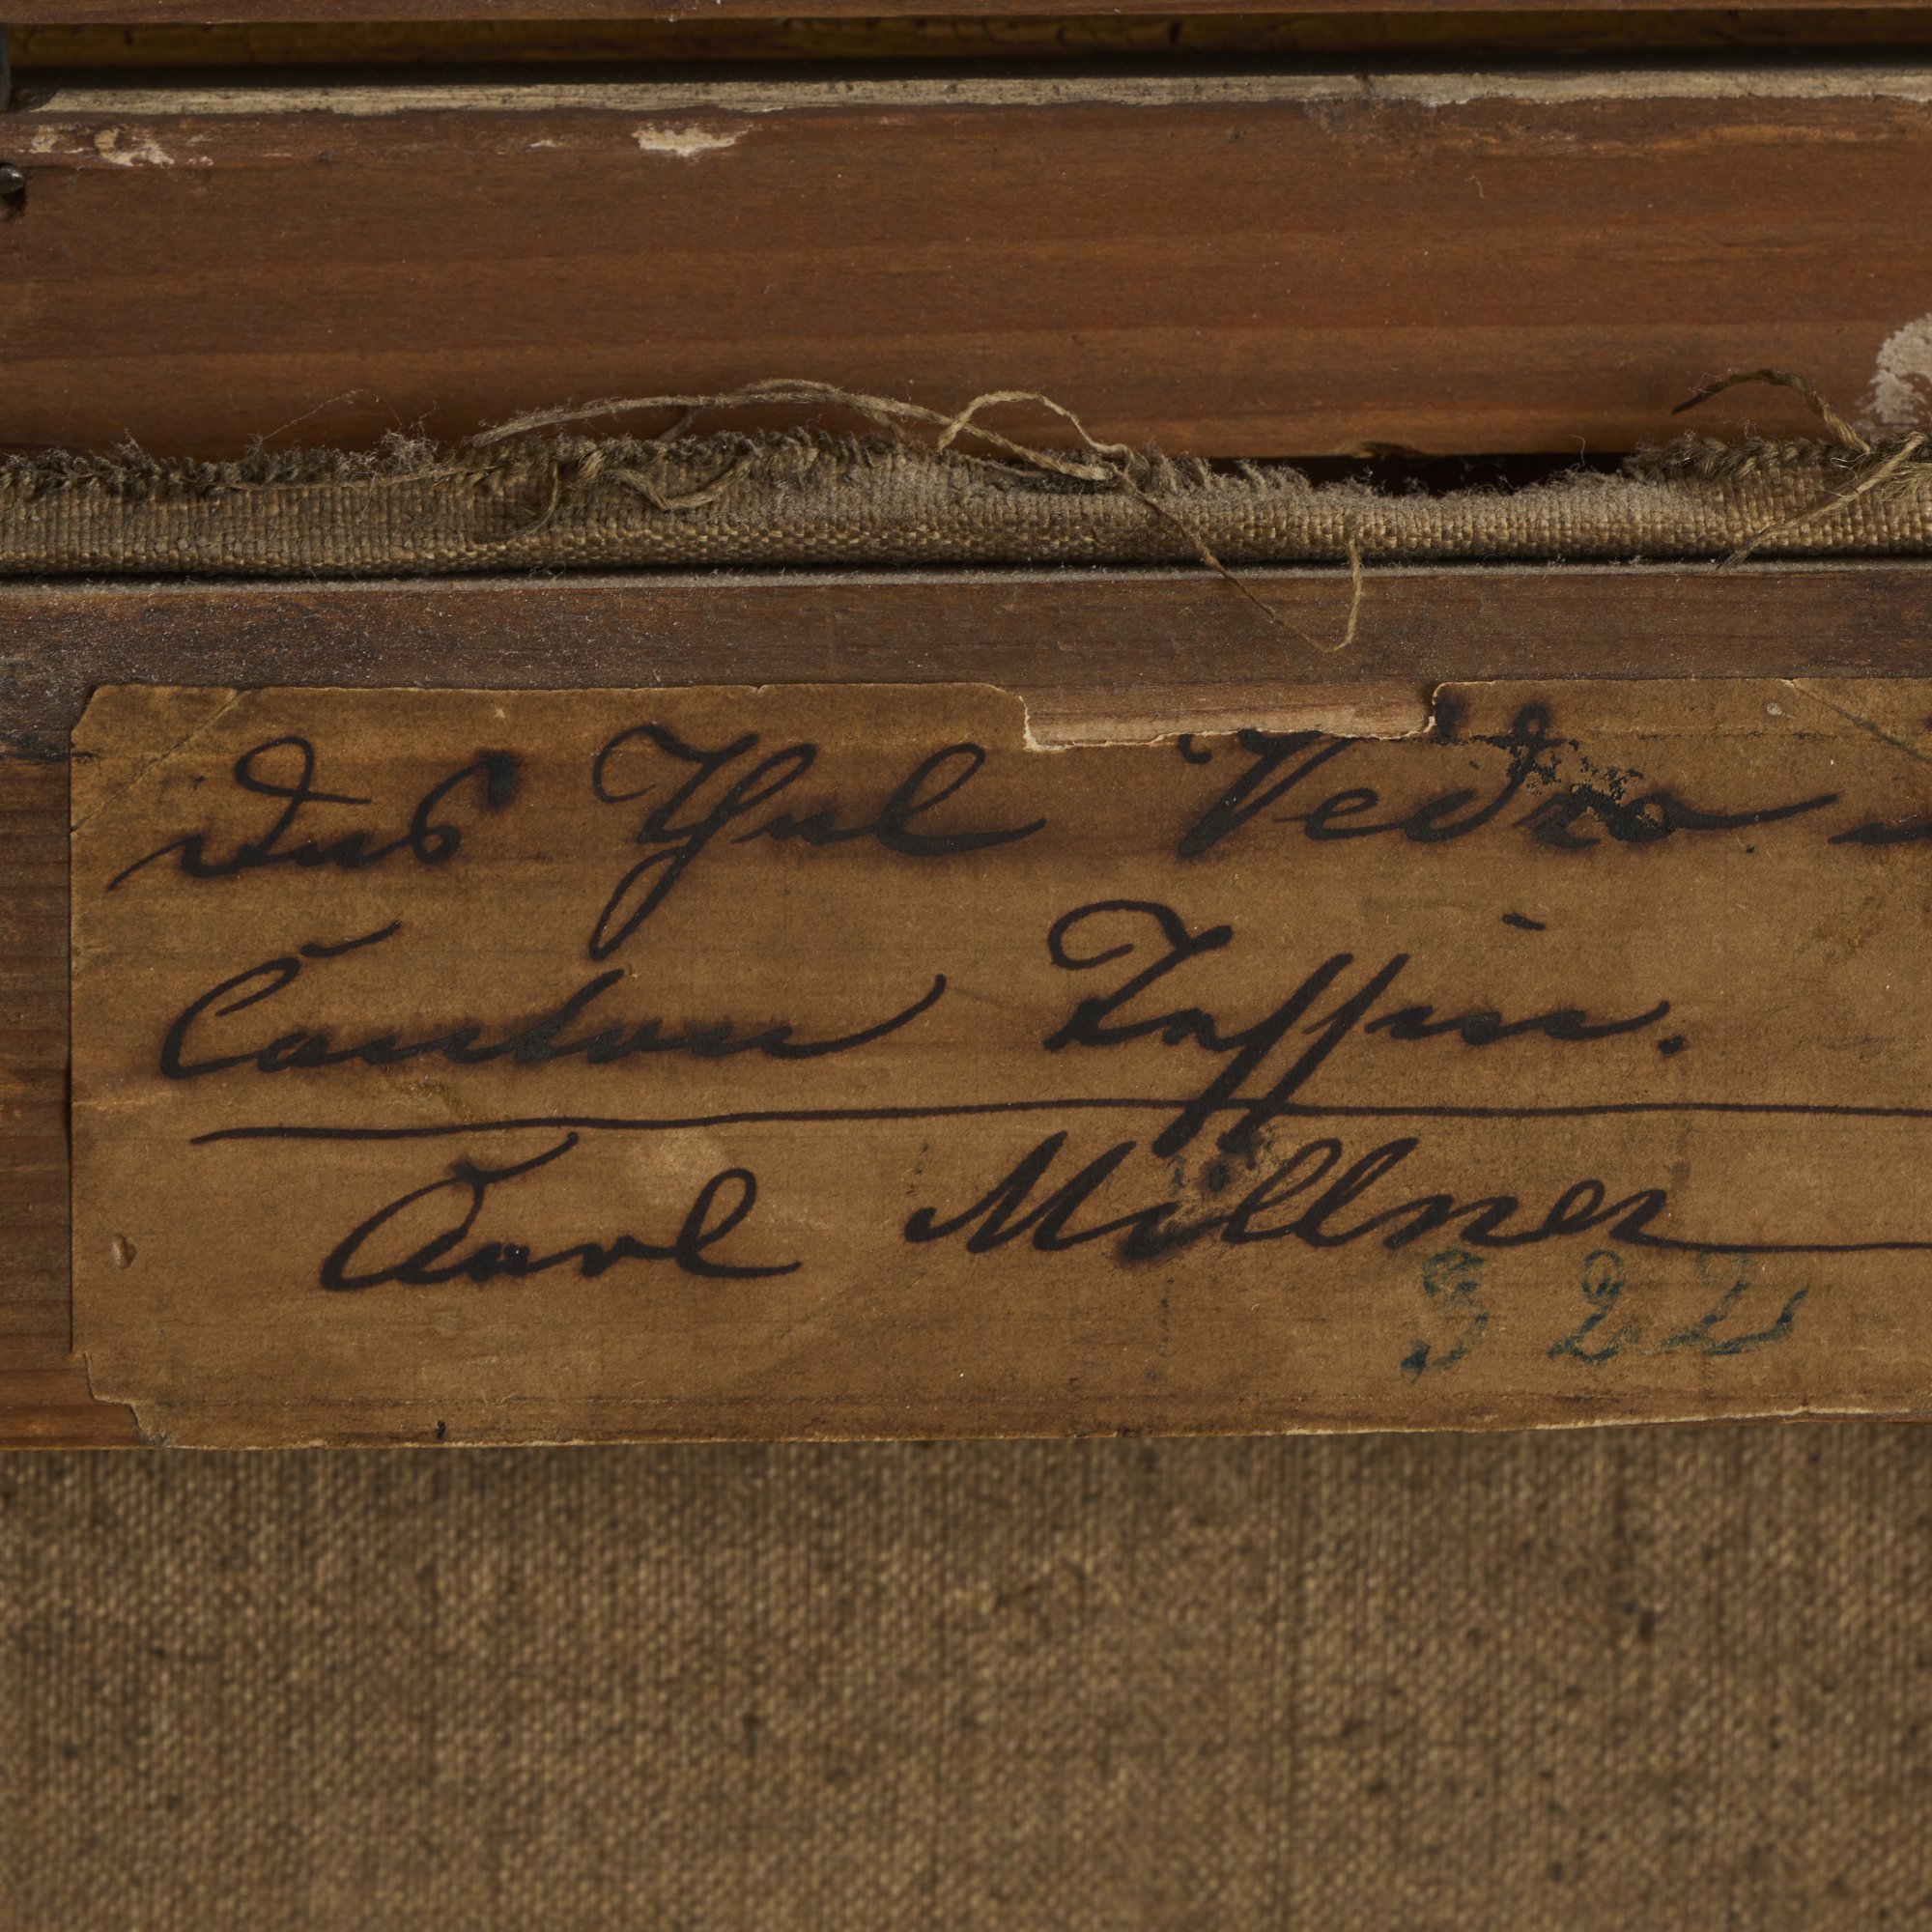 Das Thal Vedro
Canton Tessin.
Carl Millner
322